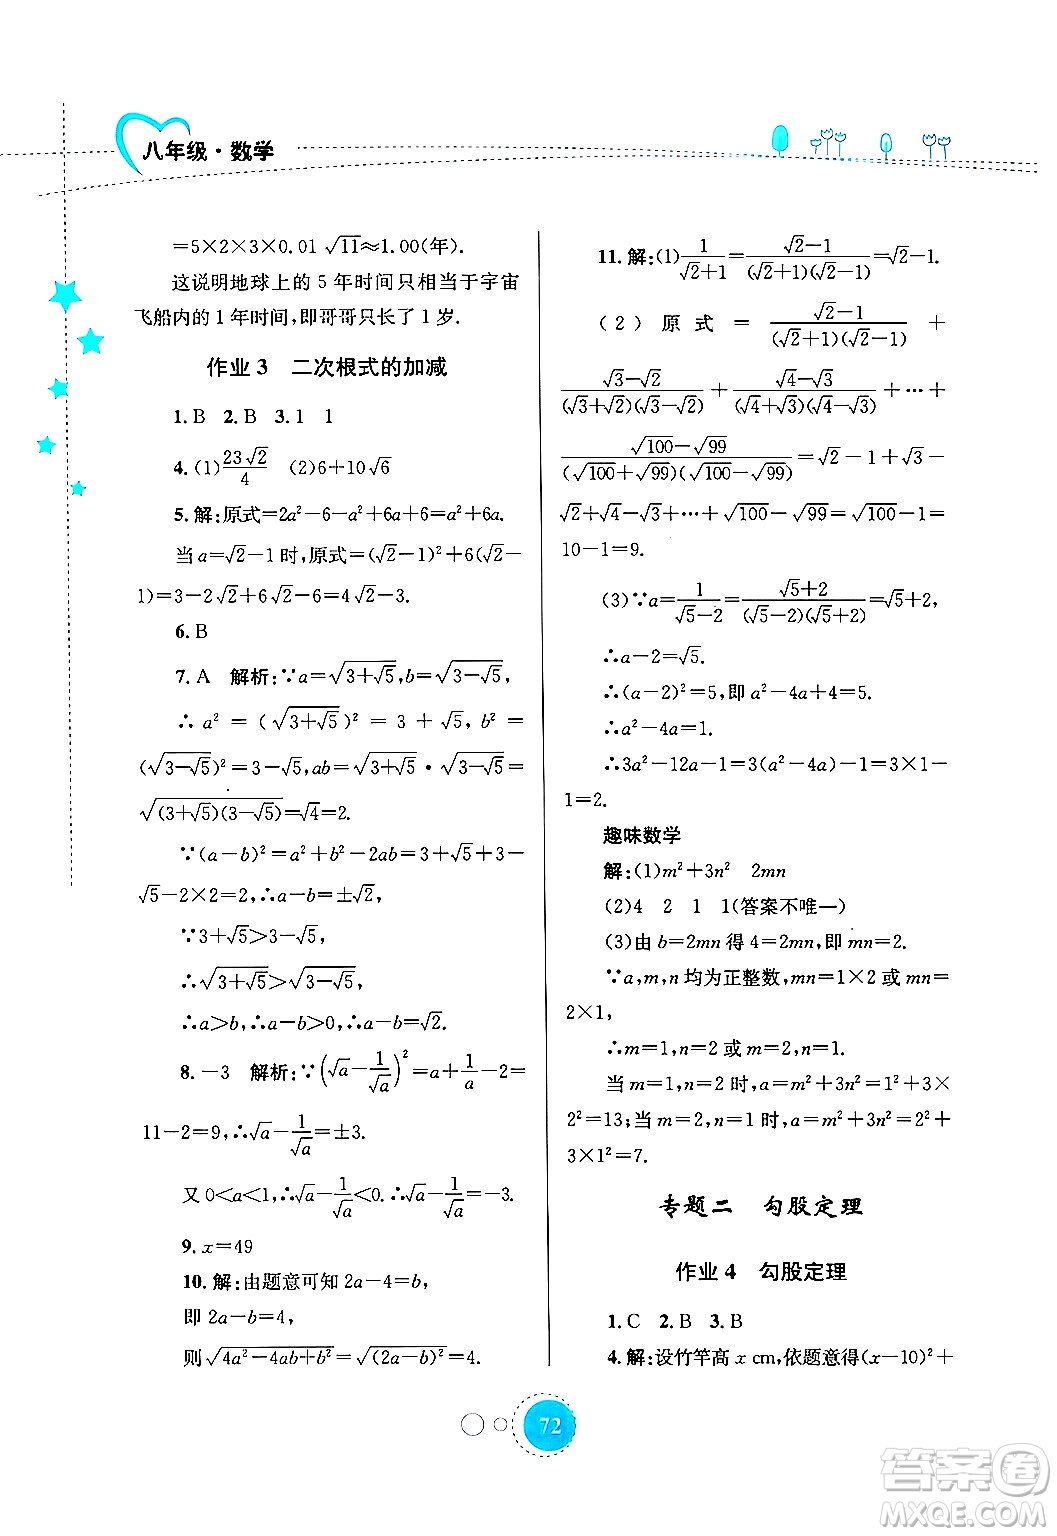 八年级·数学
=5×2×3×0.01√11≈1.00(年).
这说明地球上的 5 年时间只相当于宇宙
飞船内的 1 年时间,即哥哥只长了 1 岁.
作业 3 二次根式的加减
1. B 2. B 3. 1 1
4. (1) 23√2/4 (2)6+10√6
5. 解:原式=2a²-6-a²+6a+6=a²+6a.
当 a=√2-1 时,原式=(√2-1)²+6(√2-
1)=3-2√2+6√2-6=4√2-3.
6. B
7. A 解析:∵a=√(3+√5),b=√(3-√5),
∴ a² = (√(3+√5))² = 3 + √5, b² =
(√(3-√5))²=3-√5,ab=√(3+√5)·√(3-√5)=
√((3+√5)(3-√5))=√4=2.
∵(a-b)²=a²+b²-2ab=3+√5+3-
√5-2×2=2,∴a-b=±√2,
∵3+√5>3-√5,
∴√(3+√5)>√(3-√5),
∴a>b,∴a-b>0,∴a-b=√2.
8. -3 解析:∵(√a-1/√a)²=a+1/a-2=
11-2=9,∴√a-1/√a=±3.
又 0<a<1,∴√a-1/√a<0.∴√a-1/√a=-3.
9. x=49
10. 解:由题意可知 2a-4=b,
即 2a-b=4,
则√(4a²-4ab+b²)=√((2a-b)²)=4.
11. 解:(1) 1/(√2+1)=(√2-1)/((√2+1)(√2-1))=√2-1.
(2) 原 式 = (√2-1)/((√2+1)(√2-1)) +
(√3-√2)/((√3+√2)(√3-√2))+(√4-√3)/((√4+√3)(√4-√3))+…+
(√100-√99)/((√100+√99)(√100-√99))=√2-1+√3-
√2+√4-√3+…+√100-√99=√100-1=
10-1=9.
(3)∵a=1/(√5-2)=(√5+2)/((√5-2)(√5+2))=√5+2,
∴a-2=√5.
∴(a-2)²=5,即 a²-4a+4=5.
∴a²-4a=1.
∴3a²-12a-1=3(a²-4a)-1=3×1-
1=2.
趣味数学
解:(1)m²+3n² 2mn
(2)4 2 1 1(答案不唯一)
(3)由 b=2mn 得 4=2mn,即 mn=2.
∵a,m,n 均为正整数,mn=1×2 或 mn=
2×1,
∴m=1,n=2 或 m=2,n=1.
当 m=1,n=2 时,a=m²+3n²=1²+3×
2²=13;当 m=2,n=1 时,a=m²+3n²=2²+
3×1²=7.
专题二 勾股定理
作业 4 勾股定理
1. C 2. B 3. B
4. 解:设竹竿高 x cm,依题意得(x-10)²+
72
答案圈
MXQE.COM